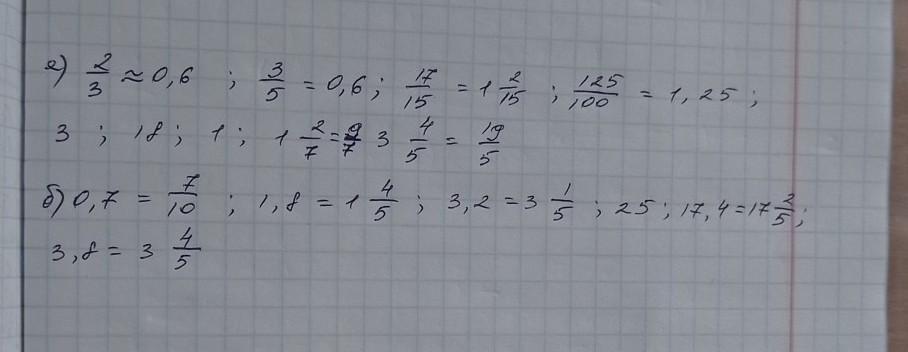 а) 2/3 ≈ 0,6 ; 3/5 = 0,6 ; 17/15 = 1 2/15 ; 125/100 = 1,25 ;
3 ; 18 ; 1 ; 1 2/7 = 9/7 3 4/5 = 19/5
б) 0,7 = 7/10 ; 1,8 = 1 4/5 ; 3,2 = 3 1/5 ; 25 ; 17,4 = 17 2/5 ;
3,8 = 3 4/5